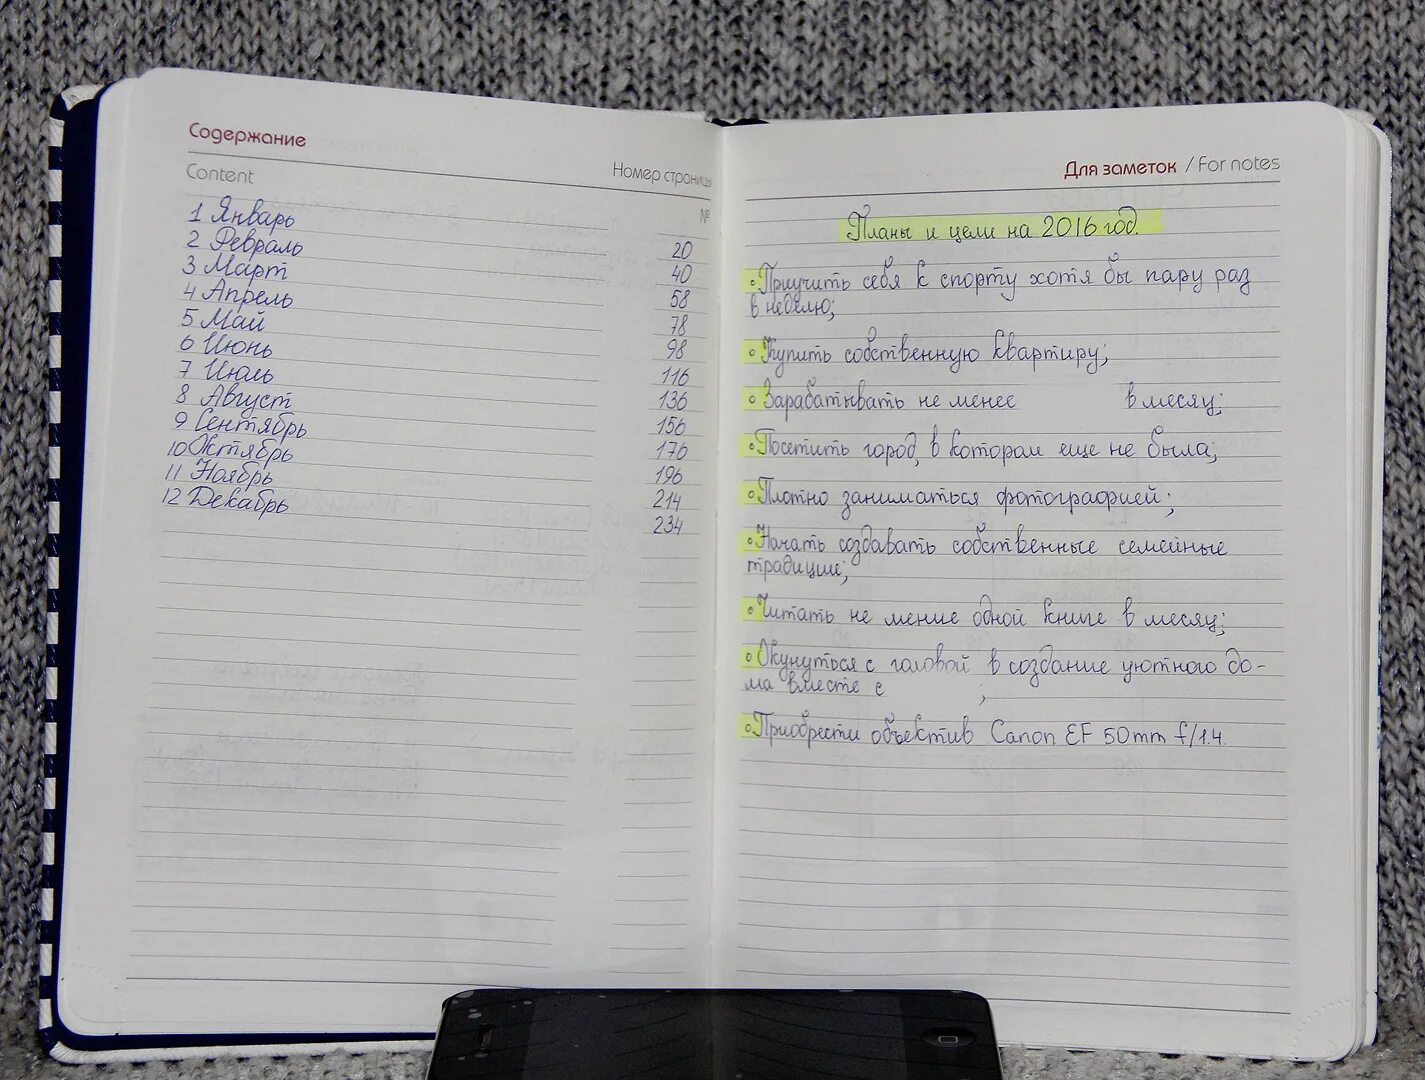 Содержание
Content
Номер страницы
№
1 Январь 20
2 Февраль 40
3 Март 58
4 Апрель 78
5 Май 98
6 Июнь 116
7 Июль 136
8 Август 156
9 Сентябрь 176
10 Октябрь 196
11 Ноябрь 214
12 Декабрь 234
Для заметок / For notes
Планы и цели на 2016 год.
Приучить себя к спорту хотя бы пару раз
в неделю;
Купить собственную квартиру;
Зарабатывать не менее в месяц;
Посетить город, в котором еще не была;
Плотно заниматься фотографией;
Начать создавать собственные семейные
традиции;
Читать не мение одной книге в месяц;
Окунуться с головой в создание уютного до-
ма вместе с ;
Приобрести объектив Canon EF 50mm f/1.4.